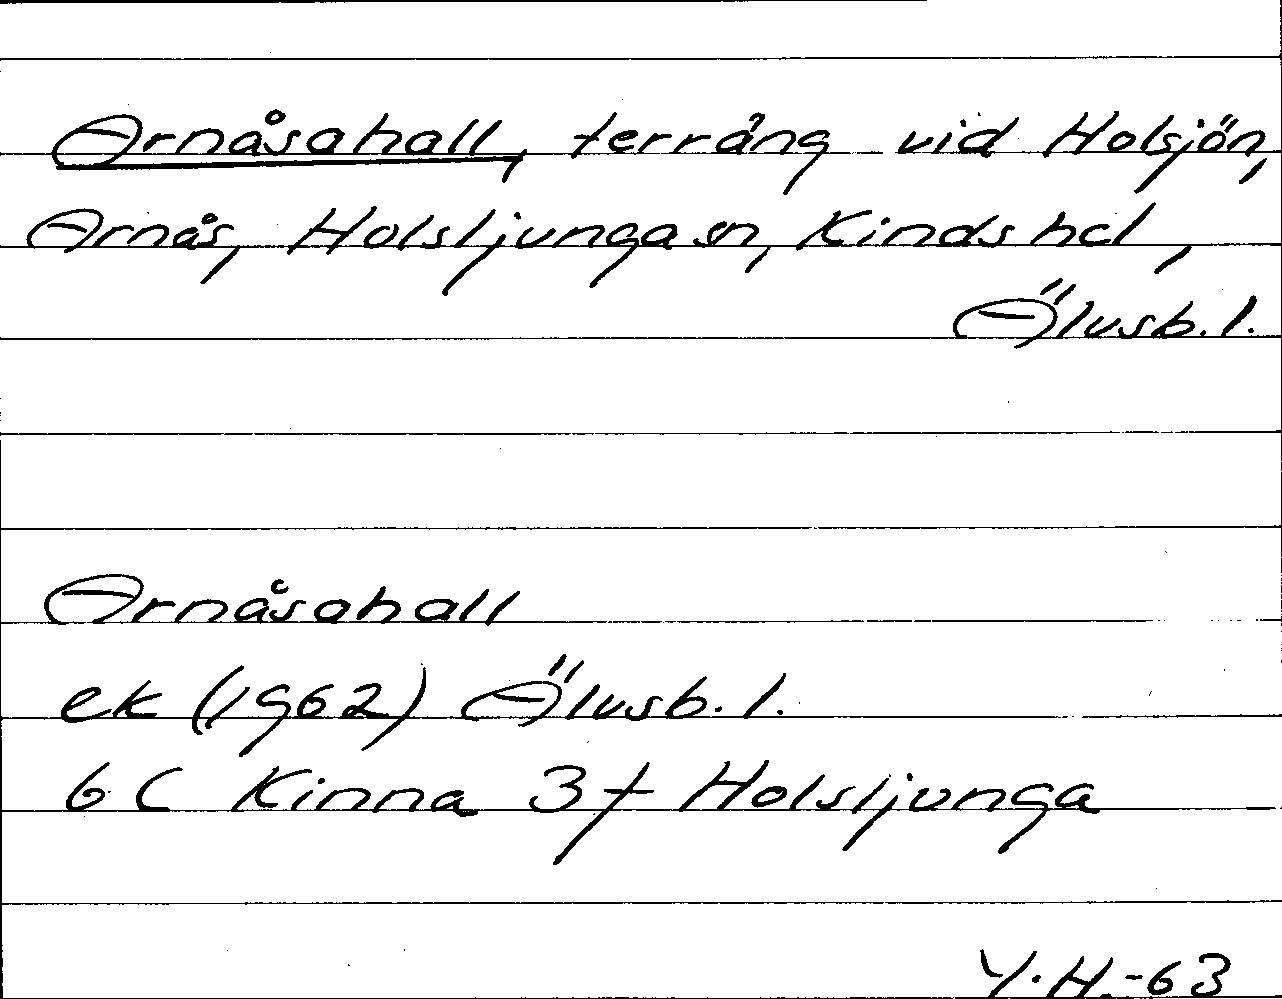 Arnåsahall, terräng vid Holsjön,
Arnås, Holsljunga sn, Kinds hd,
Älvsb. l.
Arnåsahall
ek (1962) Älvsb. l.
6 C Kinna 3 f Holsljunga
Y.H.-63